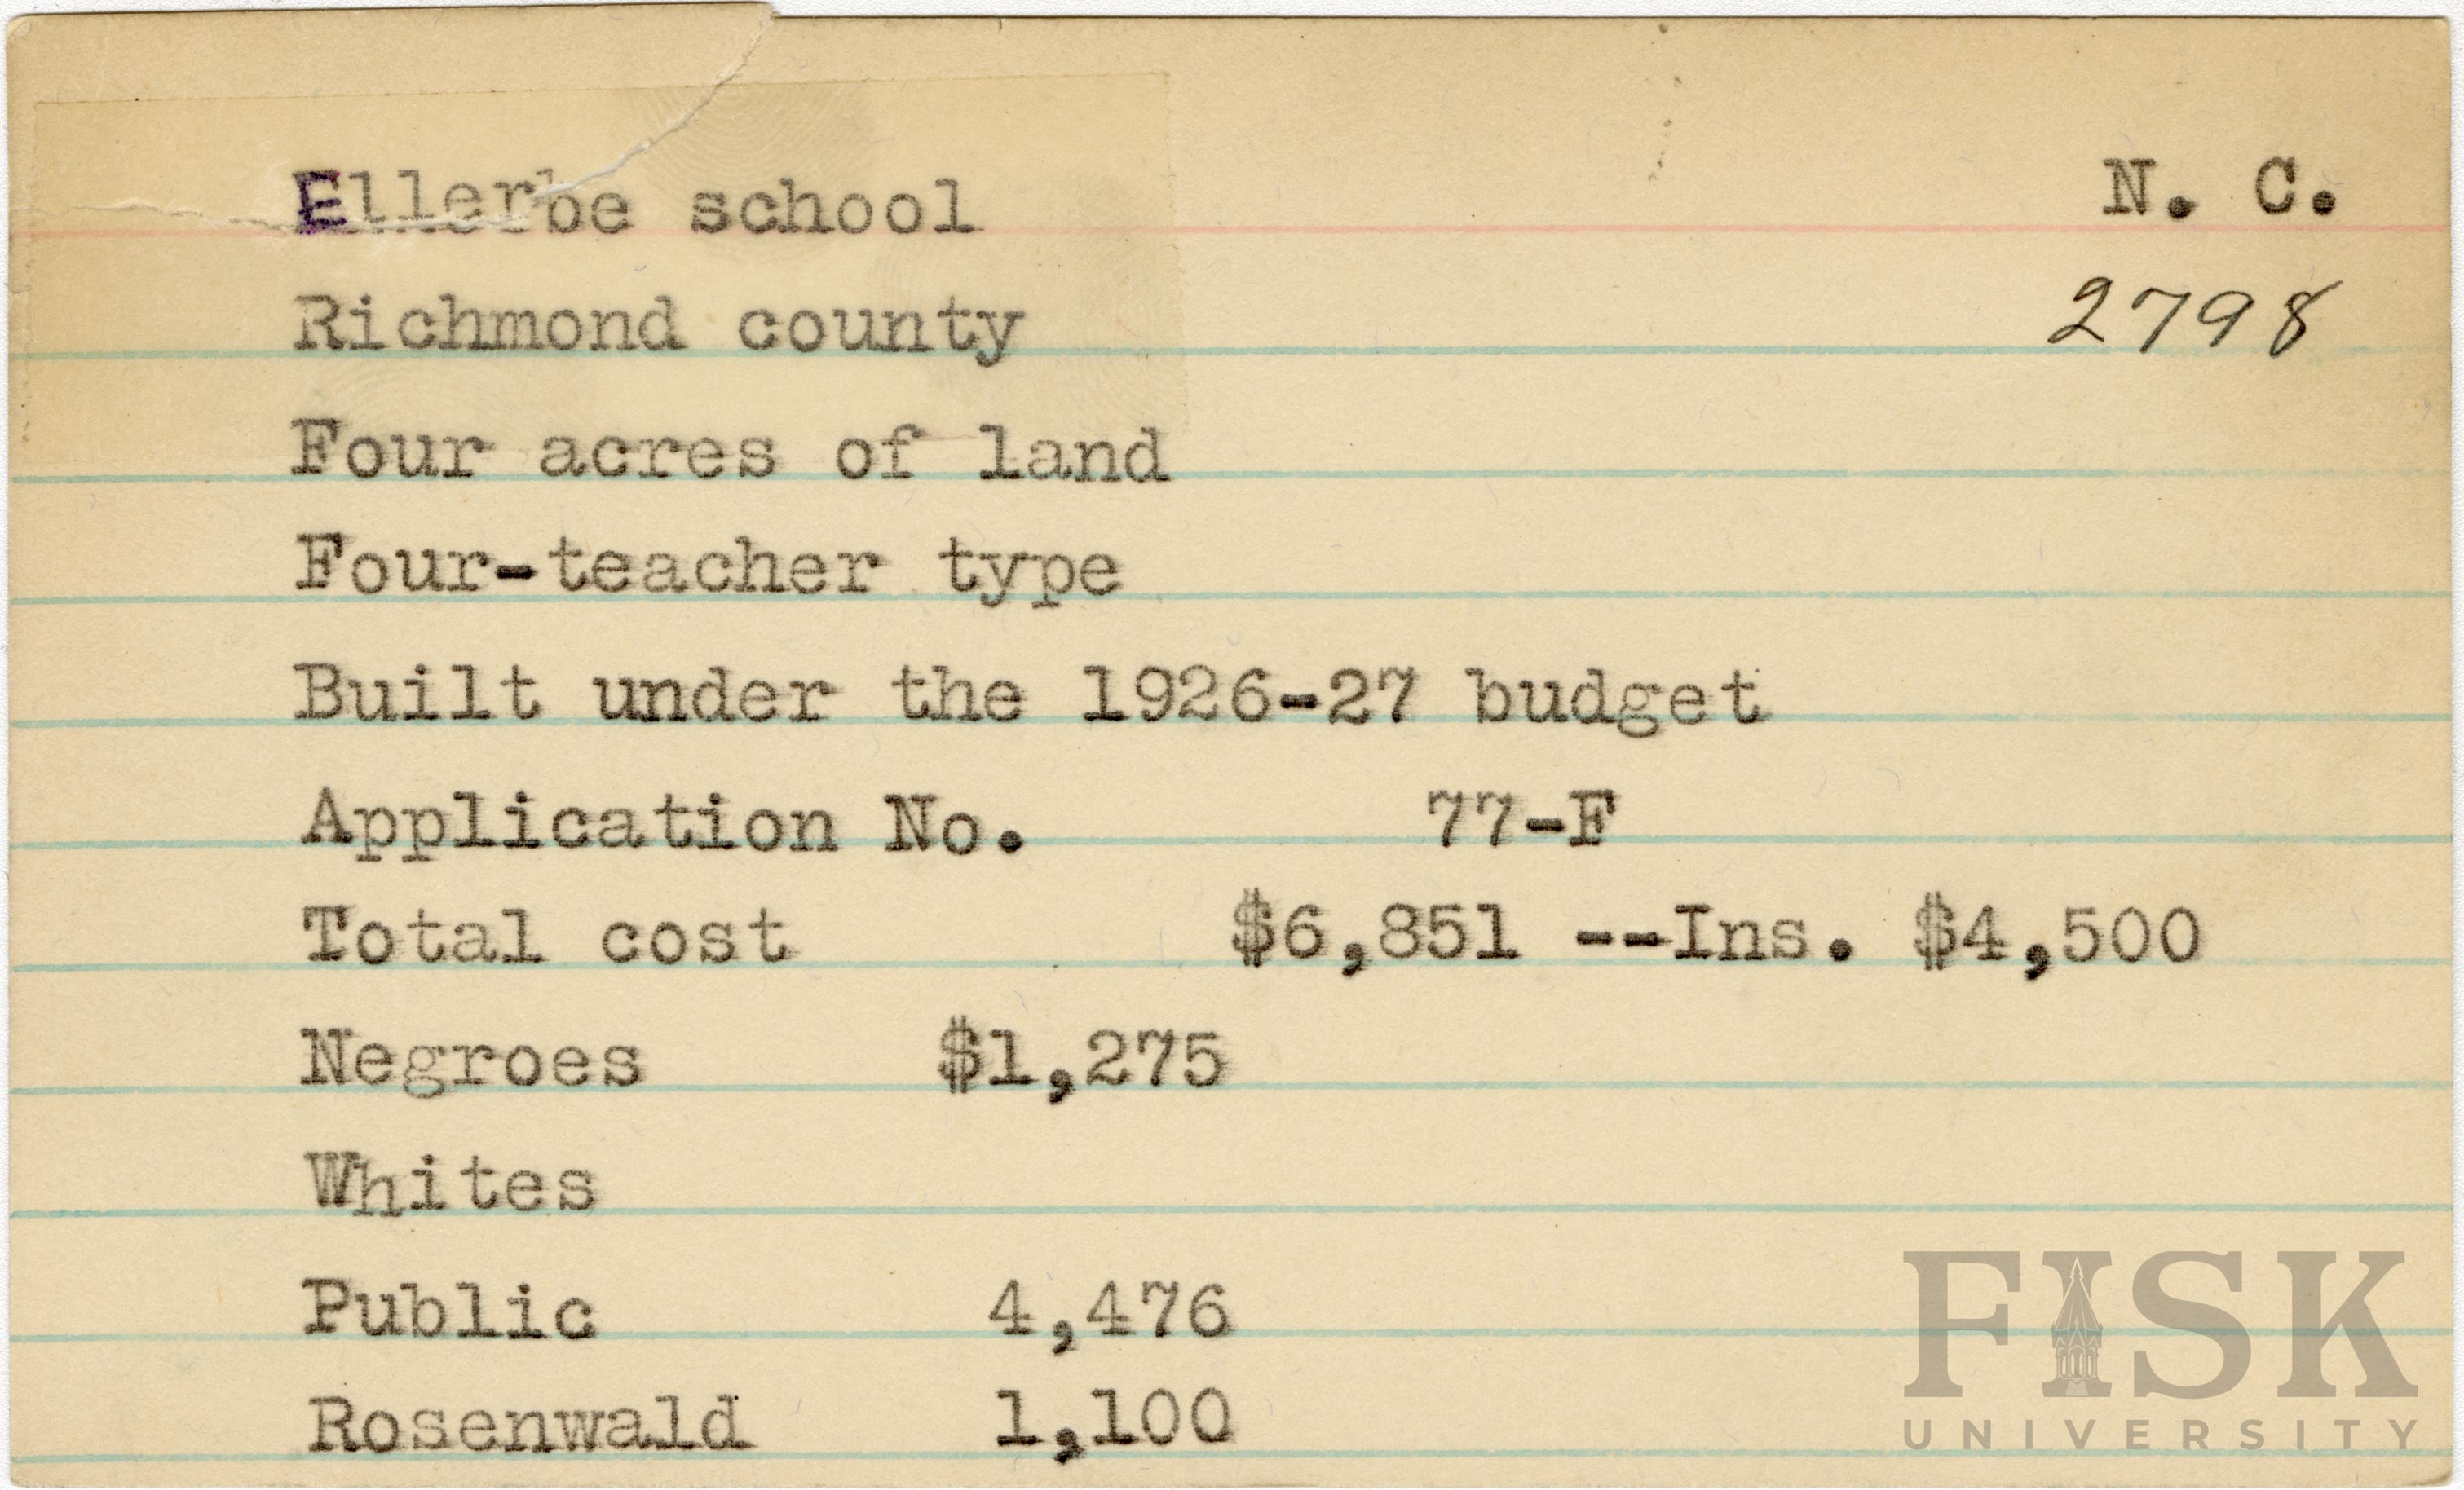 Ellerbe school N. C.
Richmond county 2798
Four acres of land
Four-teacher type
Built under the 1926-27 budget
Application No. 77-F
Total cost $6,851 --Ins. $4,500
Negroes $1,275
Whites
Public 4,476
Rosenwald 1,100
FISK
UNIVERSITY